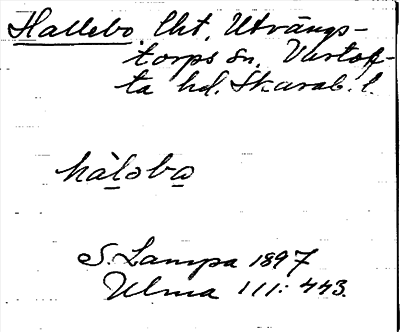 Hallebo, Lht, Utvängs-
torps sn. Vartof-
ta hd. Skarab. l.
hàləba
S. Lampa 1897
Ulma 111: 443.